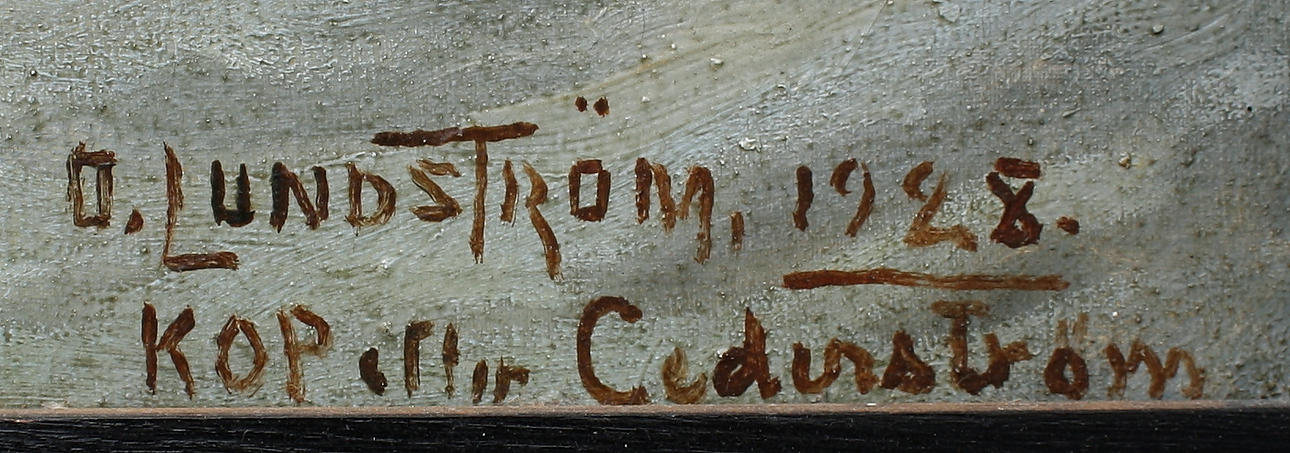 O. LUNDSTRÖM, 1928.
KOP. eftr Cederström